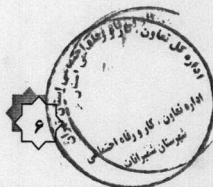 اداره کل تعاون، کار و رفاه اجتماعی استان تهران
اداره تعاون، کار و رفاه اجتماعی
شهرستان شمیرانات
۶